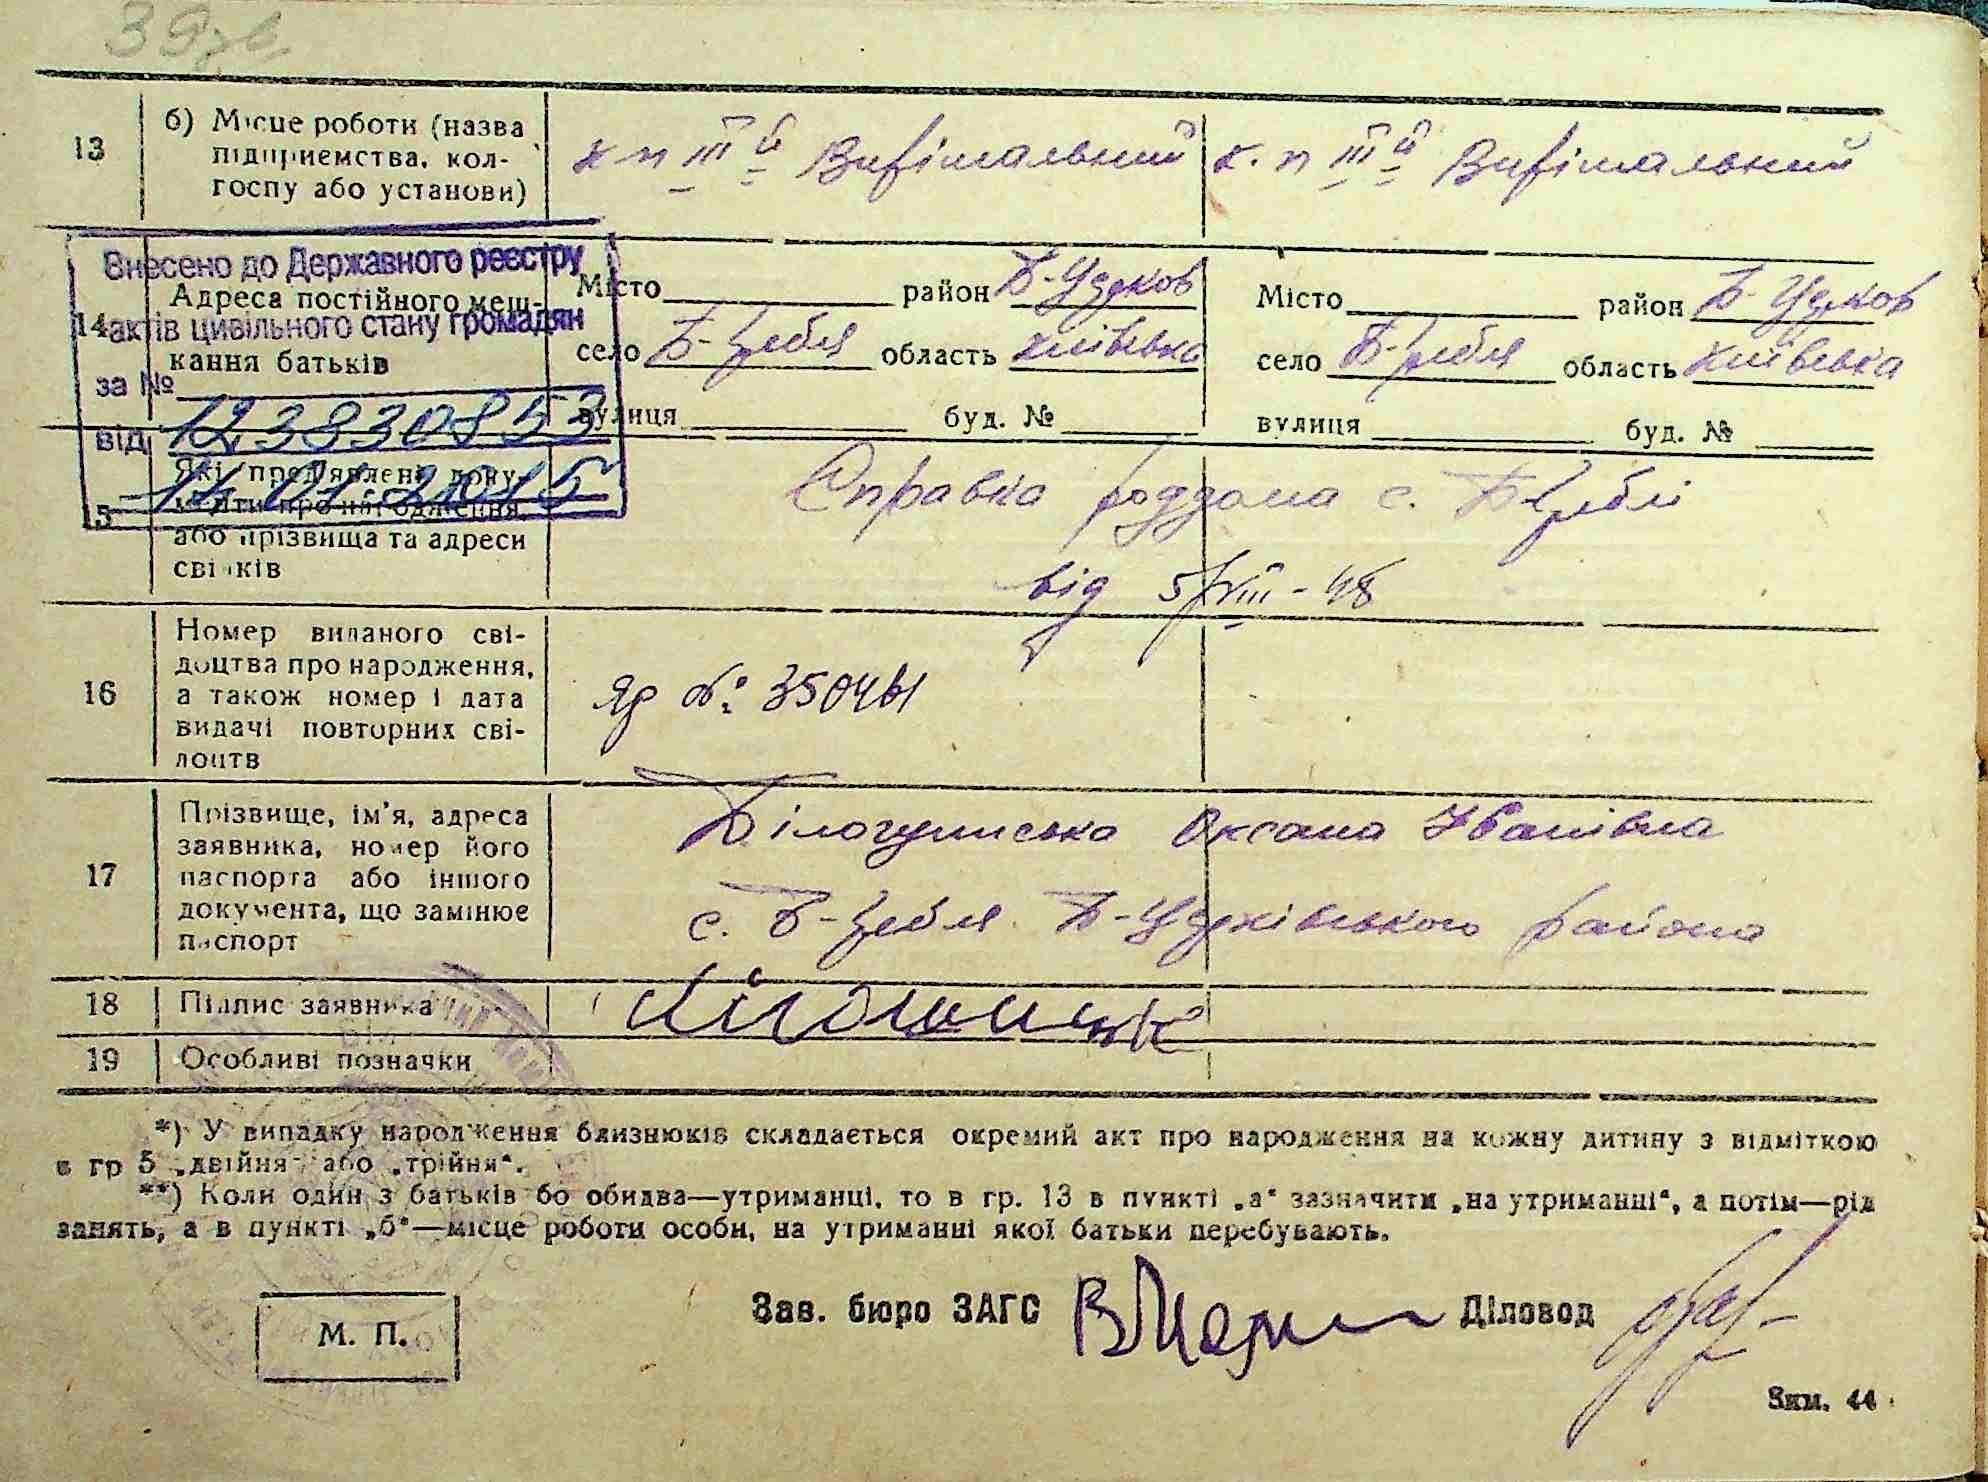 39зв.
13
б) Місце роботи (назва
підприємства, кол-
госпу або установи)
к-п ІІІ й Вирішальний
к. п ІІІ й Вирішальний
Внесено до Державного реєстру
актів цивільного стану громадян
за № 12383085
від 14 01 2015
14
Адреса постійного меш-
кання батьків
Місто район Б-Удуков
село Б-Гребля область Київська
вулиця буд. №
Місто район Б-Удуков
село Б-Гребля область Київська
вулиця буд. №
5
Які пред'явлені доку-
менти про народження,
або прізвища та адреси
свідків
Справка роддома с. Б Греблі
від 5/VIII-48
16
Номер виданого сві-
доцтва про народження,
а також номер і дата
видачі повторних сві-
доцтв
ЯР № 350461
17
Прізвище, ім'я, адреса
заявника, номер його
паспорта або іншого
документа, що замінює
паспорт
Оксана Іванівна
с. Б-Гребля Б-Удуківського района
18
Підпис заявника
19
Особливі позначки
*) У випадку народження близнюків складається окремий акт про народження на кожну дитину з відміткою
в гр 5 „двійня“ або „трійня“.
**) Коли один з батьків бо обидва—утриманці, то в гр. 13 в пункті „а“ зазначити „на утриманні“, а потім—рід
занять, а в пункті „б“—місце роботи особи, на утриманні якої батьки перебувають.
М. П.
Зав. бюро ЗАГС
Діловод
Зкм. 44